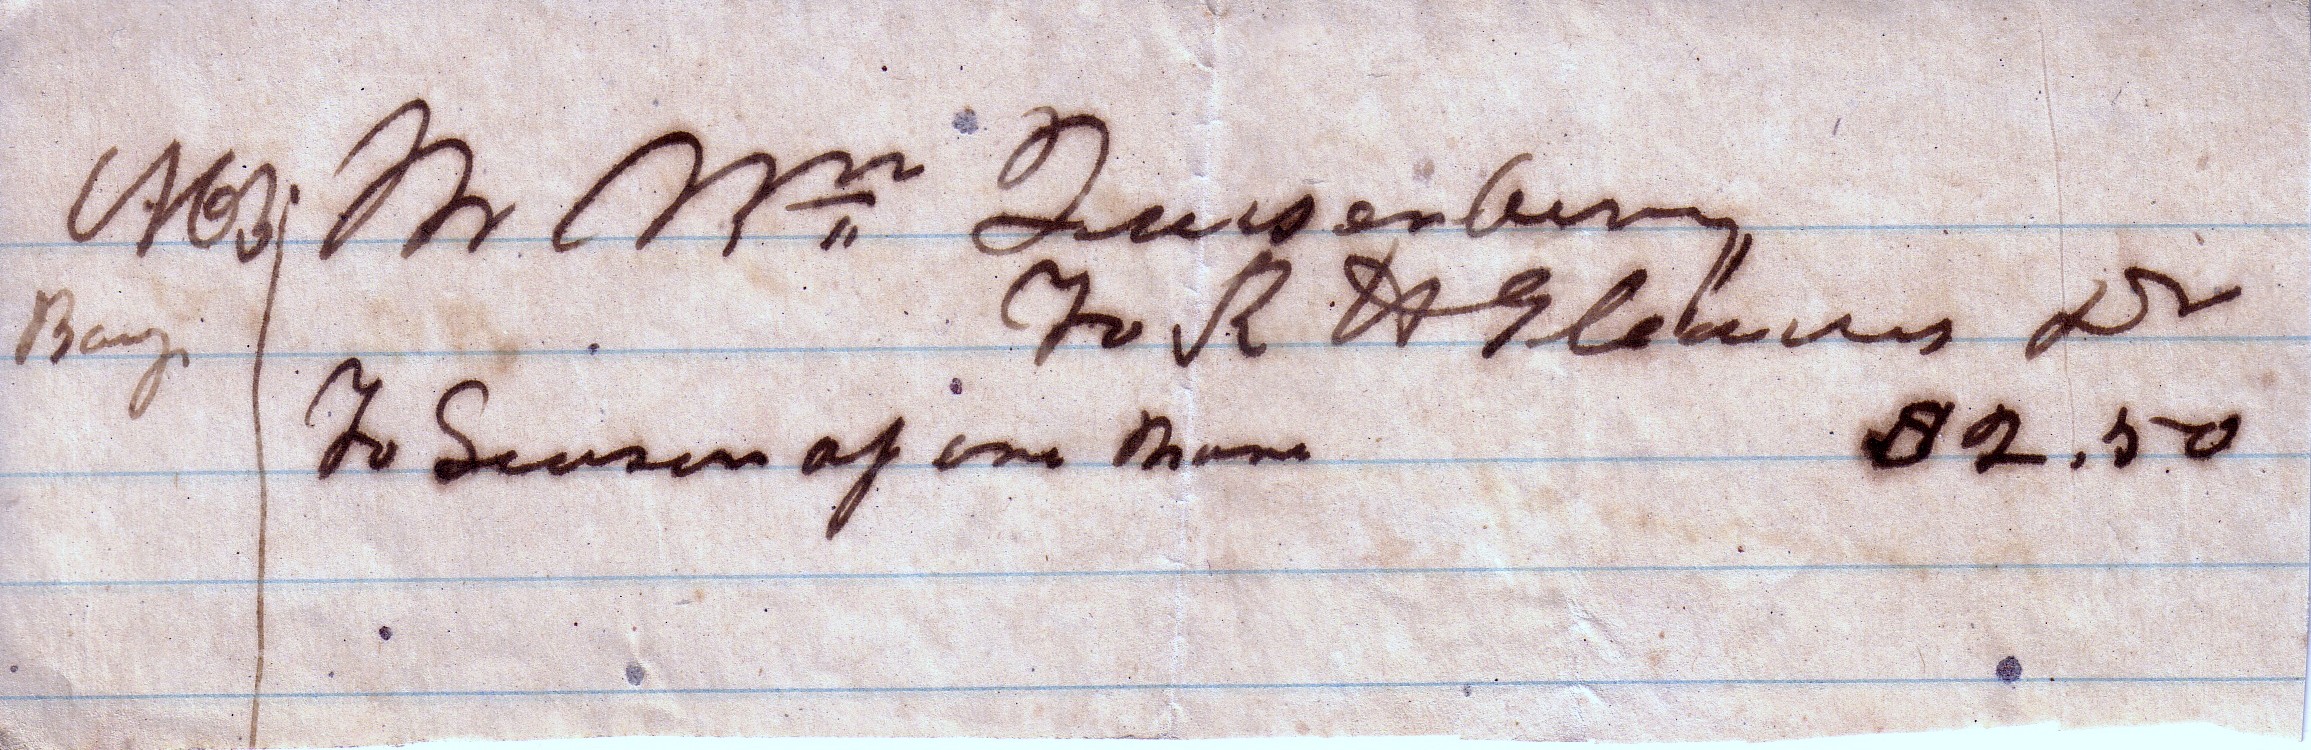 Mr Wm Quesenberry
Bay
To R H Gleaves Dr
To Season of one Mare $2.50